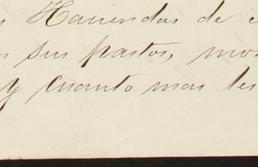 s Haciendas de
s sus pastos, mo
y cuanto mas les